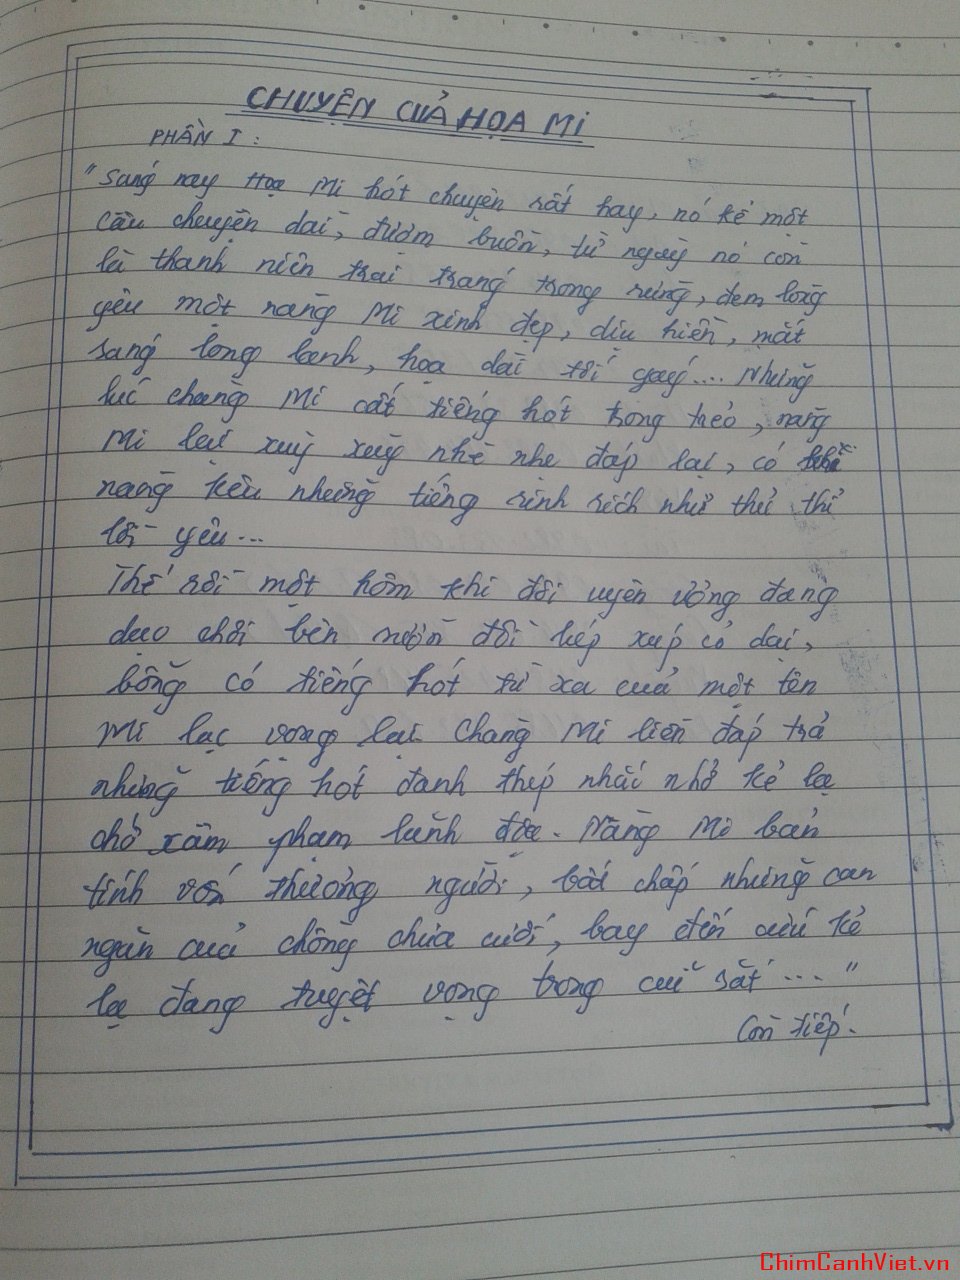 CHUYỆN CỦA HỌA MI
PHẦN I :
"Sáng nay Họa Mi hót chuyện rất hay, nó kể một
câu chuyện dài, đượm buồn, từ ngày nó còn
là thanh niên trai tráng trong rừng, đem lòng
yêu một nàng Mi xinh đẹp, dịu hiền, mắt
sáng long lanh, họa dài tới gáy.... Những
lúc chàng Mi cất tiếng hót trong trẻo, nàng
Mi lại xùy xùy nhè nhẹ đáp lại, có khi
nàng kêu những tiếng rinh rích như thủ thỉ
lời yêu...
Thế rồi một hôm khi đôi uyên ương đang
dạo chơi bên sườn đồi lúp xúp cỏ dại,
bỗng có tiếng hót từ xa của một tên
Mi lạc vọng lại. Chàng Mi liền đáp trả
những tiếng hót đanh thép nhắc nhở kẻ lạ
chớ xâm phạm lãnh địa. Nàng Mi bản
tính vốn thương người, bất chấp những can
ngăn của chồng chưa cưới, bay đến cứu kẻ
lạ đang tuyệt vọng trong cũi sắt...."
Còn tiếp.
ChimCanhViet.vn